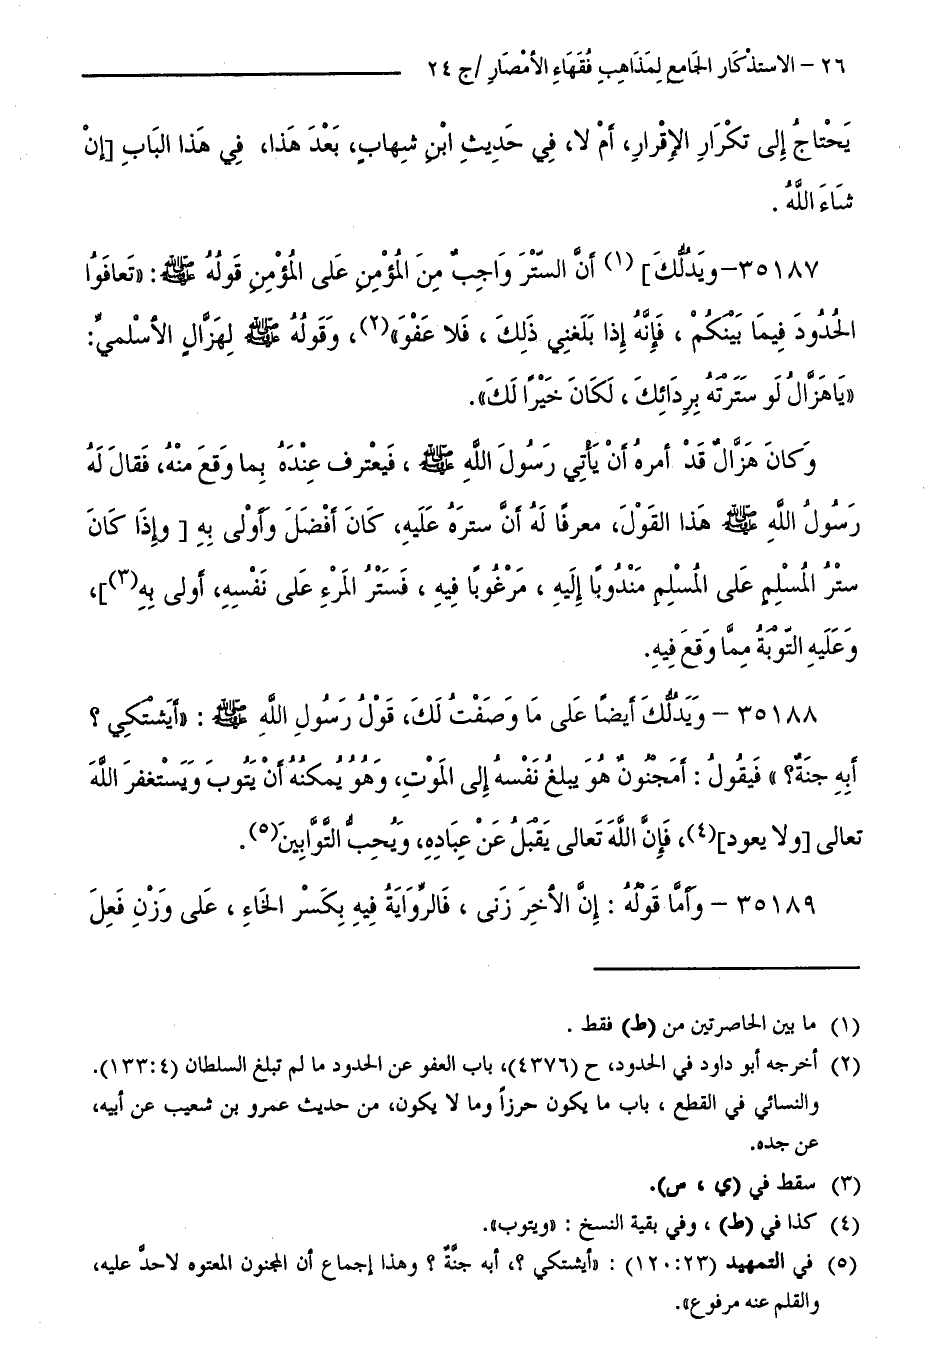 ٢٦ – الاستذْكَار الجَامع لِمَذَاهِبِ فُقَهَاءِ الأَمْصَارِ / ج ٢٤
يَحْتاجُ إِلى تكْرَارِ الإِقْرارِ، أَمْ لا، فِي حَدِيثِ ابْنِ شِهابٍ، بَعْدَ هَذا، فِي هَذا البَابِ [إنْ
شَاءَ اللَّهُ .
٣٥١٨٧–ويَدُلُّكَ] (١) أَنَّ السِّتْرَ وَاجِبٌ مِنَ المُؤْمِنِ عَلى المُؤْمِنِ قَولُهُ ﷺ: «تَعافَوُا
الحُدُودَ فِيمَا بَيْنَكُمْ ، فَإِنَّهُ إِذا بَلَغنِي ذَلِكَ ، فَلا عَفْوَ»(٢)، وَقَولُهُ ﷺ لِهَزَّالٍ الأَسْلميِّ:
«يَاهَزَّالُ لَو سَتَرَتْهُ بِرِدَائِكَ ، لَكَانَ خَيْرًا لَكَ».
وَكانَ هَزَّالٌ قَدْ أمرهُ أَنْ يَأْتِي رَسُولَ اللَّهِ ﷺ ، فَيعْترف عِنْدَهُ بِما وقَعَ منْهُ، فَقالَ لَهُ
رَسُولُ اللَّهِ ﷺ هَذا القَوْلَ، معرفًا لَهُ أَنَّ سترَهُ عَلَيهِ، كَانَ أَفْضَلَ وَأَوْلى بِهِ [ وإِذَا كَانَ
ستْرُ المُسْلِمِ عَلى المُسْلِمِ مَنْدُوبًا إِلَيهِ ، مَرْغُوبًا فِيهِ ، فَسَتْرُ المَرْءِ عَلى نَفْسِهِ، أولى بِهِ(٣)]،
وَعَلَيهِ التَّوْبَةُ مِمَّا وقَعَ فِيهِ.
٣٥١٨٨ – وَيَدُلُّكَ أَيضاً عَلى مَا وَصَفْتُ لَكَ، قَوْلُ رَسُولِ اللَّهِ ﷺ : «أيَشْتَكِي ؟
أَبِهِ جنَةٌ؟ » فَيقُولُ : أمَجْنُونٌ هُوَ يبلغُ نَفْسهُ إِلى المَوْتِ، وَهُوُ يُمكنُهُ أَنْ يَتُوبَ وَيَسْتغفرَ اللَّهَ
تعالى [ولا يعود](٤)، فَإِنَّ اللَّهَ تَعالى يَقْبَلُ عَنْ عِبادِهِ، ويُحِبُّ التَّوَّابِينَ(٥).
٣٥١٨٩ – وَأَمَّا قَوْلُهُ : إِنَّ الأَخِرَ زَنى ، فَالرِّوَايَةُ فِيهِ بِكَسْرِ الخَاءِ ، عَلى وَزْنِ فَعِلَ
(١) ما بين الحاصرتين من (ط) فقط .
(٢) أخرجه أبو داود في الحدود، ح (٤٣٧٦)، باب العفو عن الحدود ما لم تبلغ السلطان (١٣٣:٤).
والنسائي في القطع ، باب ما يكون حرزاً وما لا يكون، من حديث عمرو بن شعيب عن أبيه،
عن جده.
(٣) سقط في (ي ، ص).
(٤) كذا في (ط) ، وفي بقية النسخ : «ويتوب».
(٥) في التمهيد (١٢٠:٢٣) : «أيشتكي ؟، أبه جنَّةٌ ؟ وهذا إجماع أن المجنون المعتوه لاحدَّ عليه،
والقلم عنه مرفوع».